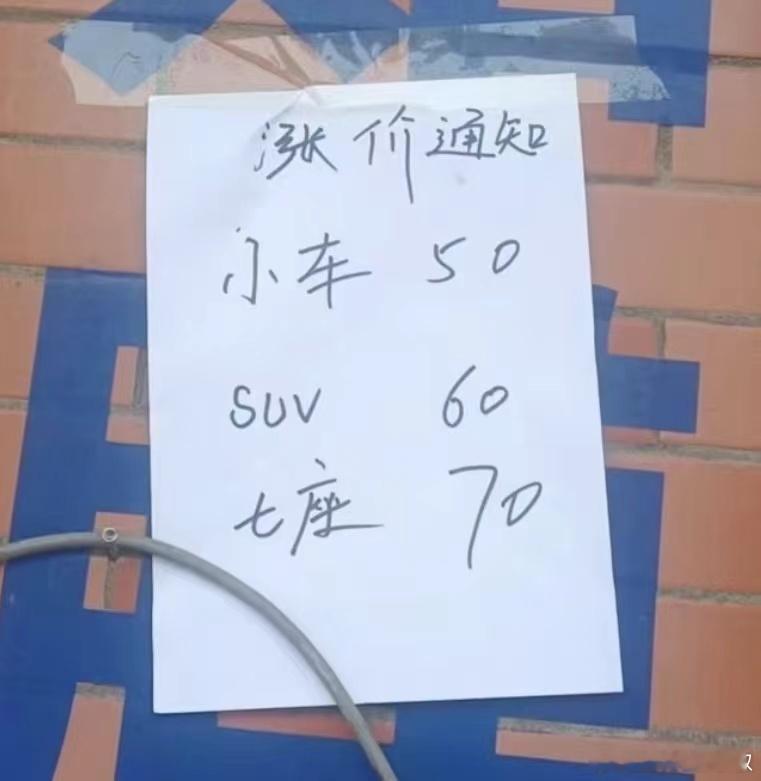 涨价通知
小车 50
SUV 60
七座 70